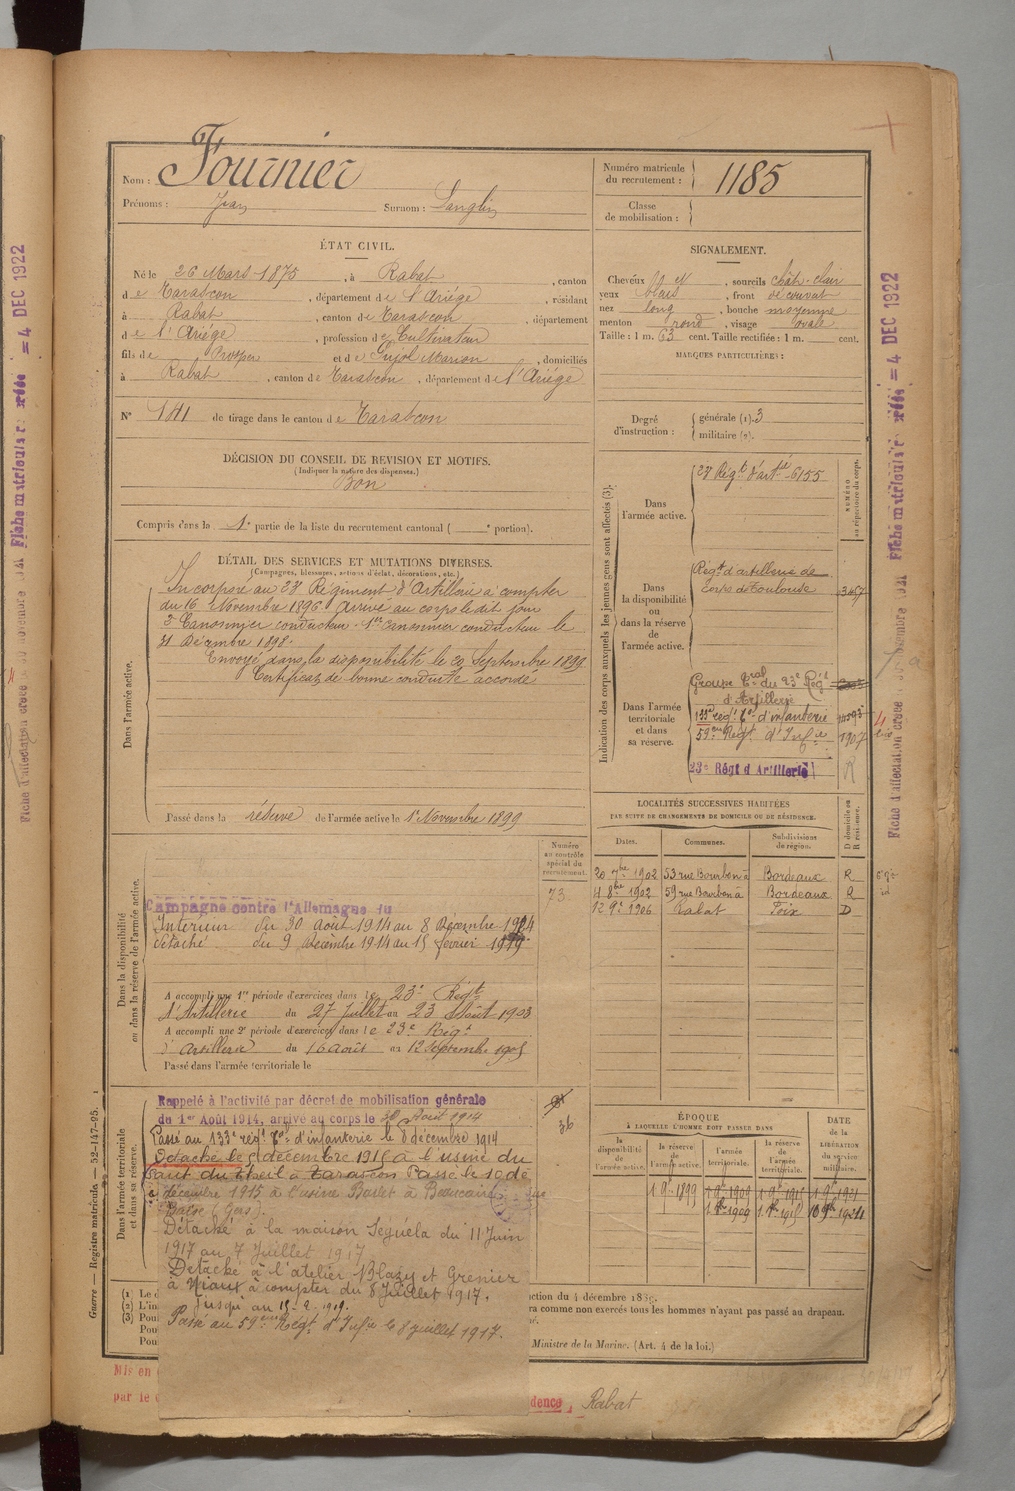 Nom : Fournier
Prénoms : Jean Surnom : Langlin
Numéro matricule du recrutement : 1185
Classe de mobilisation :
ÉTAT CIVIL.
Né le 26 Mars 1875, à Rabat, canton
de Tarascon, département de l'Ariége, résidant
à Rabat, canton de Tarascon, département
de l'Ariége, profession de Cultivateur
fils de Prosper et de Pujol Marion, domiciliés
à Rabat, canton de Tarascon, département de l'Ariége
N° 141 de tirage dans le canton de Tarascon
DÉCISION DU CONSEIL DE REVISION ET MOTIFS.
(Indiquer la nature des dispenses.)
Bon
Compris dans la 1e partie de la liste du recrutement cantonal ( e portion).
SIGNALEMENT.
Cheveux , sourcils chât. clair
yeux bleus, front découvert
nez long, bouche moyenne
menton rond, visage ovale
Taille : 1 m. 63 cent. Taille rectifiée : 1 m. cent.
MARQUES PARTICULIÈRES :
Degré d'instruction : générale (1). 3
militaire (2).
DÉTAIL DES SERVICES ET MUTATIONS DIVERSES.
(Campagnes, blessures, actions d'éclat, décorations, etc.)
Dans l'armée active.
Incorporé au 23e Régiment d'Artillerie à compter
du 16 Novembre 1896. Arrivé au corps ledit jour
2e Canonnier conducteur. 1er canonnier conducteur le
31 Décembre 1898.
Envoyé dans la disponibilité le 20 Septembre 1899
Certificat de bonne conduite accordé
Passé dans la réserve de l'armée active le 1er Novembre 1899
Indication des corps auxquels les jeunes gens sont affectés (3).
NUMÉRO au répertoire du corps.
Dans l'armée active.
23e Régt d'artie 6155
Dans la disponibilité ou dans la réserve de l'armée active.
Régt d'artillerie de
corps de Toulouse 3457
Dans l'armée territoriale et dans sa réserve.
Groupe Tral du 23e Régt
d'Artillerie
133e régt Tal d'infanterie
59e Régt d'Infie 1907
23e Régt d'Artillerie R
LOCALITÉS SUCCESSIVES HABITÉES
PAR SUITE DE CHANGEMENTS DE DOMICILE OU DE RÉSIDENCE.
Dates. Communes. Subdivisions de région. D domicile ou R résidence.
20 7bre 1902 53 rue Bourbon à Bordeaux R
4 8bre 1902 59 rue Bourbon à Bordeaux R
12 9e 1906 Rabat Foix D
Numéro au contrôle spécial du recrutement.
73
Dans la disponibilité ou dans la réserve de l'armée active.
Campagne contre l'Allemagne du
Intérieur du 30 août 1914 au 8 Décembre 1914
détaché du 9 décembre 1914 au 15 février 1919
A accompli une 1re période d'exercices dans le 23e Régt
d'Artillerie du 27 Juillet au 23 Août 1903
A accompli une 2e période d'exercices dans le 23e Régt
d'Artillerie du 16 août au 12 Septembre 1905
Passé dans l'armée territoriale le
Dans l'armée territoriale et dans sa réserve.
Rappelé à l'activité par décret de mobilisation générale
du 1er Août 1914, arrivé au corps le 30 Août 1914
36
Passé au 133e régt Tal d'infanterie le 8 décembre 1914
Détaché le 9 décembre 1914 à l'usine du
Saut du à Tarascon Passé le 10 dé
décembre 1915 à l'usine
(Gers).
Détaché à la maison Séguéla du 11 Juin
1917 au 7 Juillet 1917
Détaché à l'atelier Blazy et Grenier
à Niaux à compter du 8 Juillet 1917.
Jusqu'au 15-2-1919.
Passé au 59eme Régt d'Infie le 8 juillet 1917.
ÉPOQUE
À LAQUELLE L'HOMME DOIT PASSER DANS
la disponibilité de l'armée active. la réserve de l'armée active. l'armée territoriale. la réserve de l'armée territoriale.
DATE de la LIBÉRATION du service militaire.
1 9e 1899 1 9e 1909 1 9e 1915 1 9e 1921
(1) Le d
(2) L'in
(3) Pour
Pour
Pour
ction du 4 décembre 1889.
ra comme non exercés tous les hommes n'ayant pas passé au drapeau.
né.
Ministre de la Marine. (Art. 4 de la loi.)
Mis en
par le
dence, Rabat
Guerre — Registre matricule. — 52-147-95.
Fiche matricule créée = 4 DEC 1922
Fiche matricule créée = 4 DEC 1922